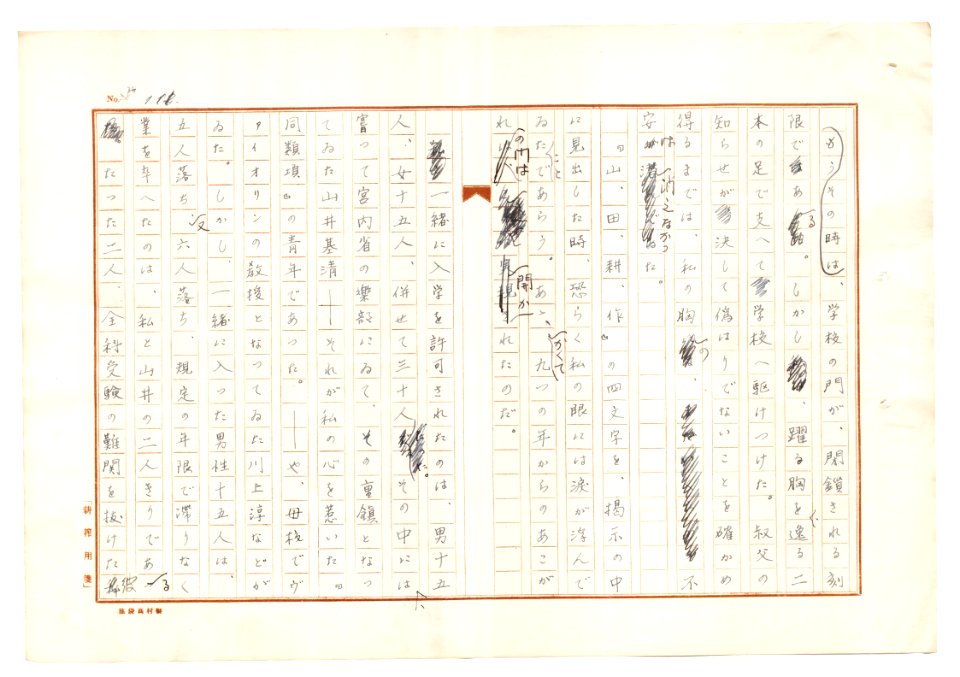 No. 116.
もうその時は、学校の門が、閉鎖される刻
限である。しかし、躍る胸を、逸る二
本の足で支へて学校へ駆けつけた。叔父の
知らせが決して偽はりでないことを確かめ
得るまでは、私の胸の不
安は消えなかつた。
『山、田、耕、作』の四文字を、掲示の中
に見出した時、恐らく私の眼には涙が浮んで
ゐたことであらう。あゝ、かくて九つの年からのあこが
れの門は開かれたのだ。
一緒に入学を許可されたのは、男十五
人、女十五人、併せて三十人だつた。その中には
嘗つて宮内省の楽部にゐて、その重鎮となつ
てゐた山井基清――それが私の心を惹いた『
同類項』の青年であつた。――や、母校でヴ
アイオリンの教授となつてゐた川上淳などが
ゐた。しかし、一緒に入つた男性十五人は、
五人落ち、又六人落ち、規定の年限で滞りなく
業を卒へたのは、私と山井の二人きりであ
る
つた二人、全科受験の難関を抜けた彼
「耕搾用箋」